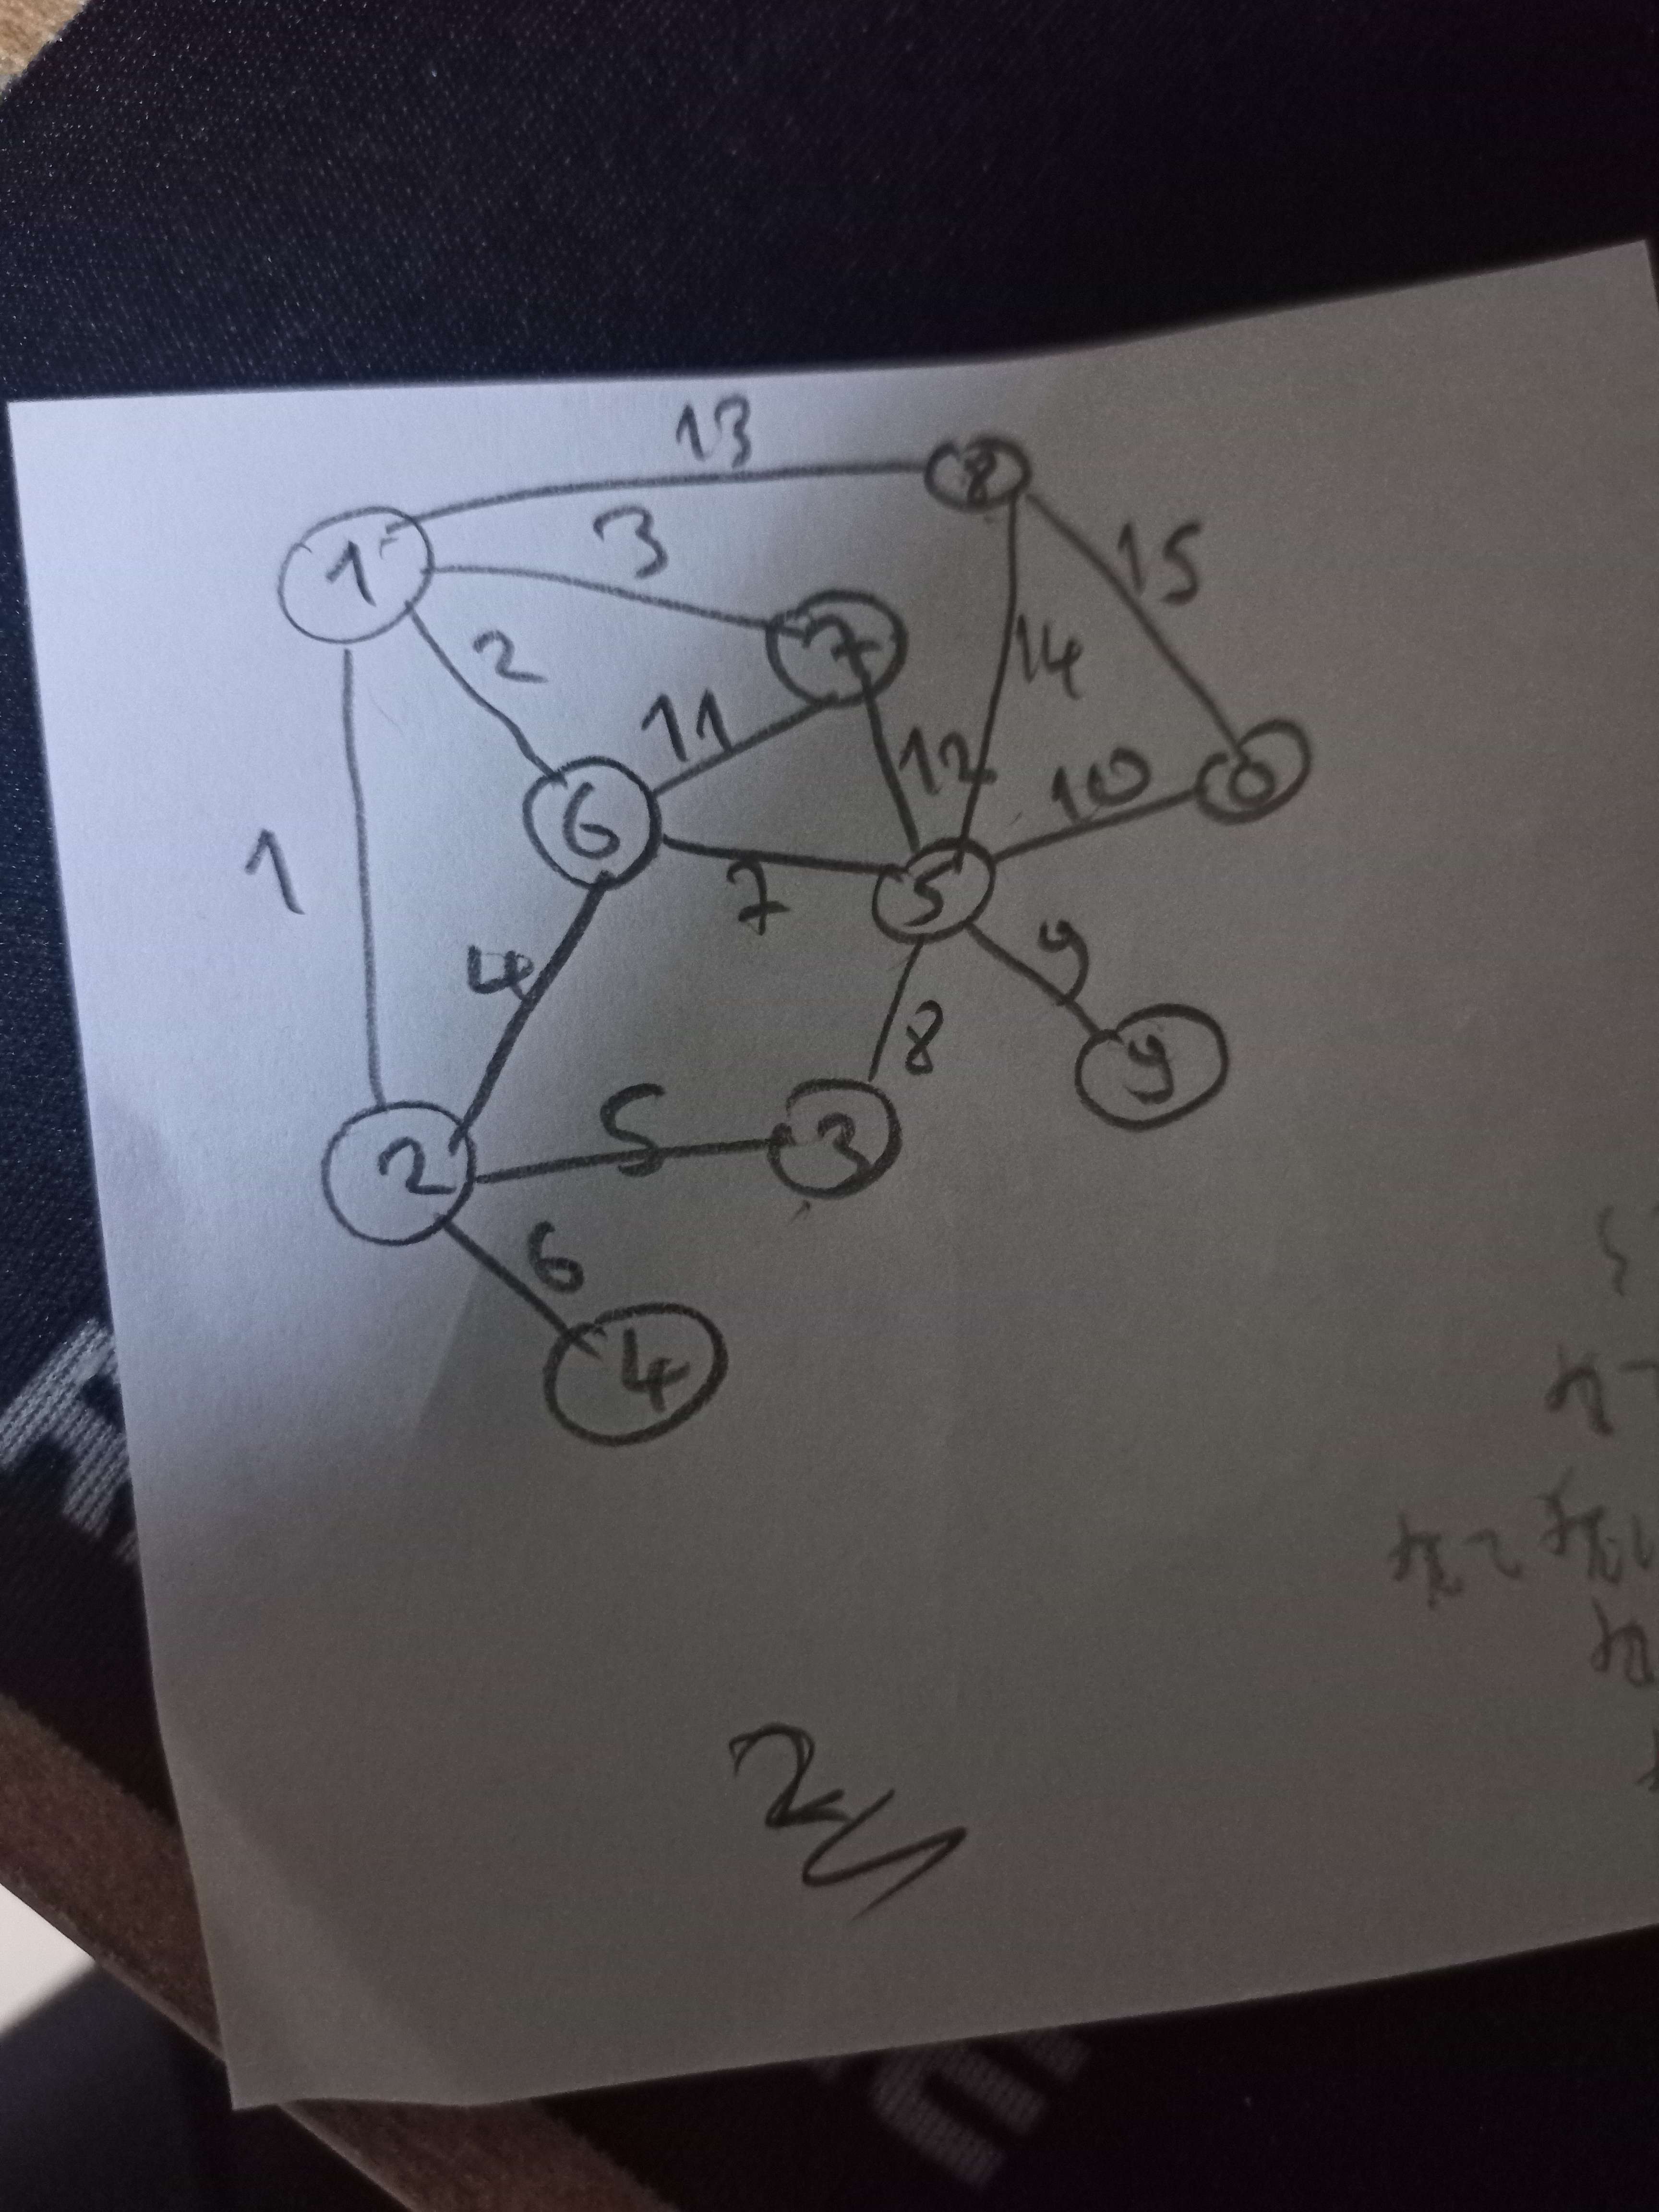 13
8
1
3
15
7
2
14
11
12
10
0
6
1
7
5
4
9
8
9
5
3
2
6
4
2